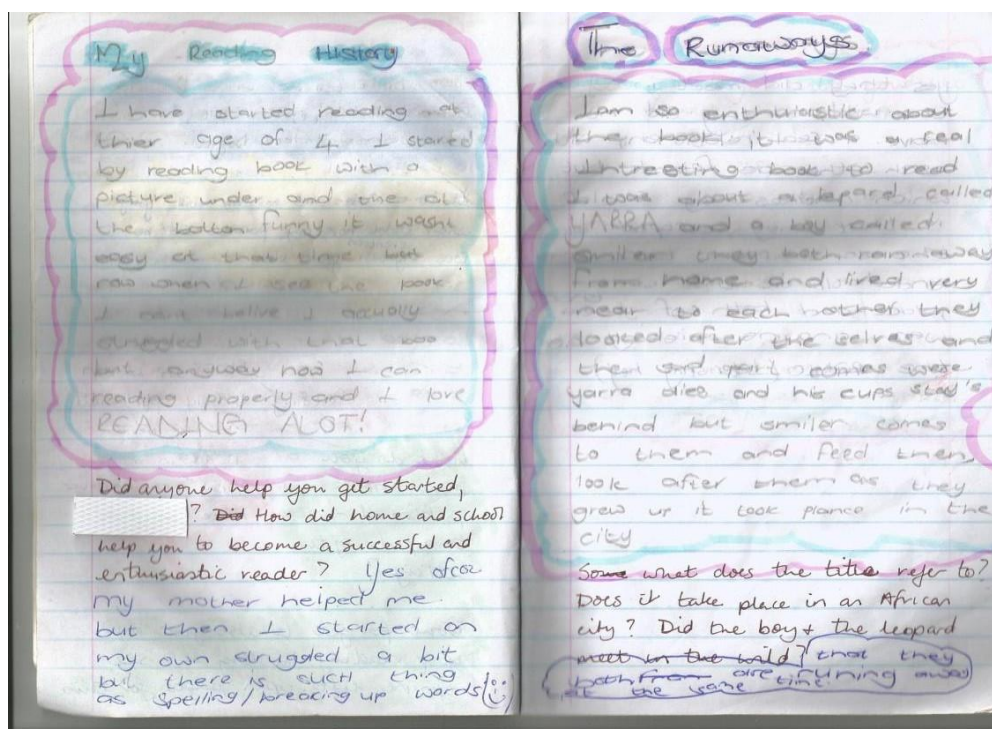 My Reading History
I have started reading at
thier age of 4 I stared
by reading book with a
picture under and the at
the bottom funny it wasnt
easy at that time but
now when I see the book
I cant belive I actually
struggled with that boo
but anyway now I can
reading properly and I love
READING ALOT!
Did anyone help you get started,
? Did How did home and school
help you to become a successful and
enthusiastic reader? Yes ofcoz
my mother helped me
but then I started on
my own struggled a bit
but there is such thing
as spelling/breacing up words
The Runaways
I am so enthuiastic about
the book it was a real
Intreeting book to read
I was about a lepard called
YARRA and a boy called
smiler they both ran away
from home and lived very
near to each nother they
looked after the selves and
then sad part comes were
yarra dies and his cups stay's
behind but smiler comes
to them and feed then,
look after them as they
grew up it took plance in the
city
Some what does the title refer to?
Does it take place in an African
city? Did the boy + the leopard
meet in the wild? that they
both from are runing away
at the same time.